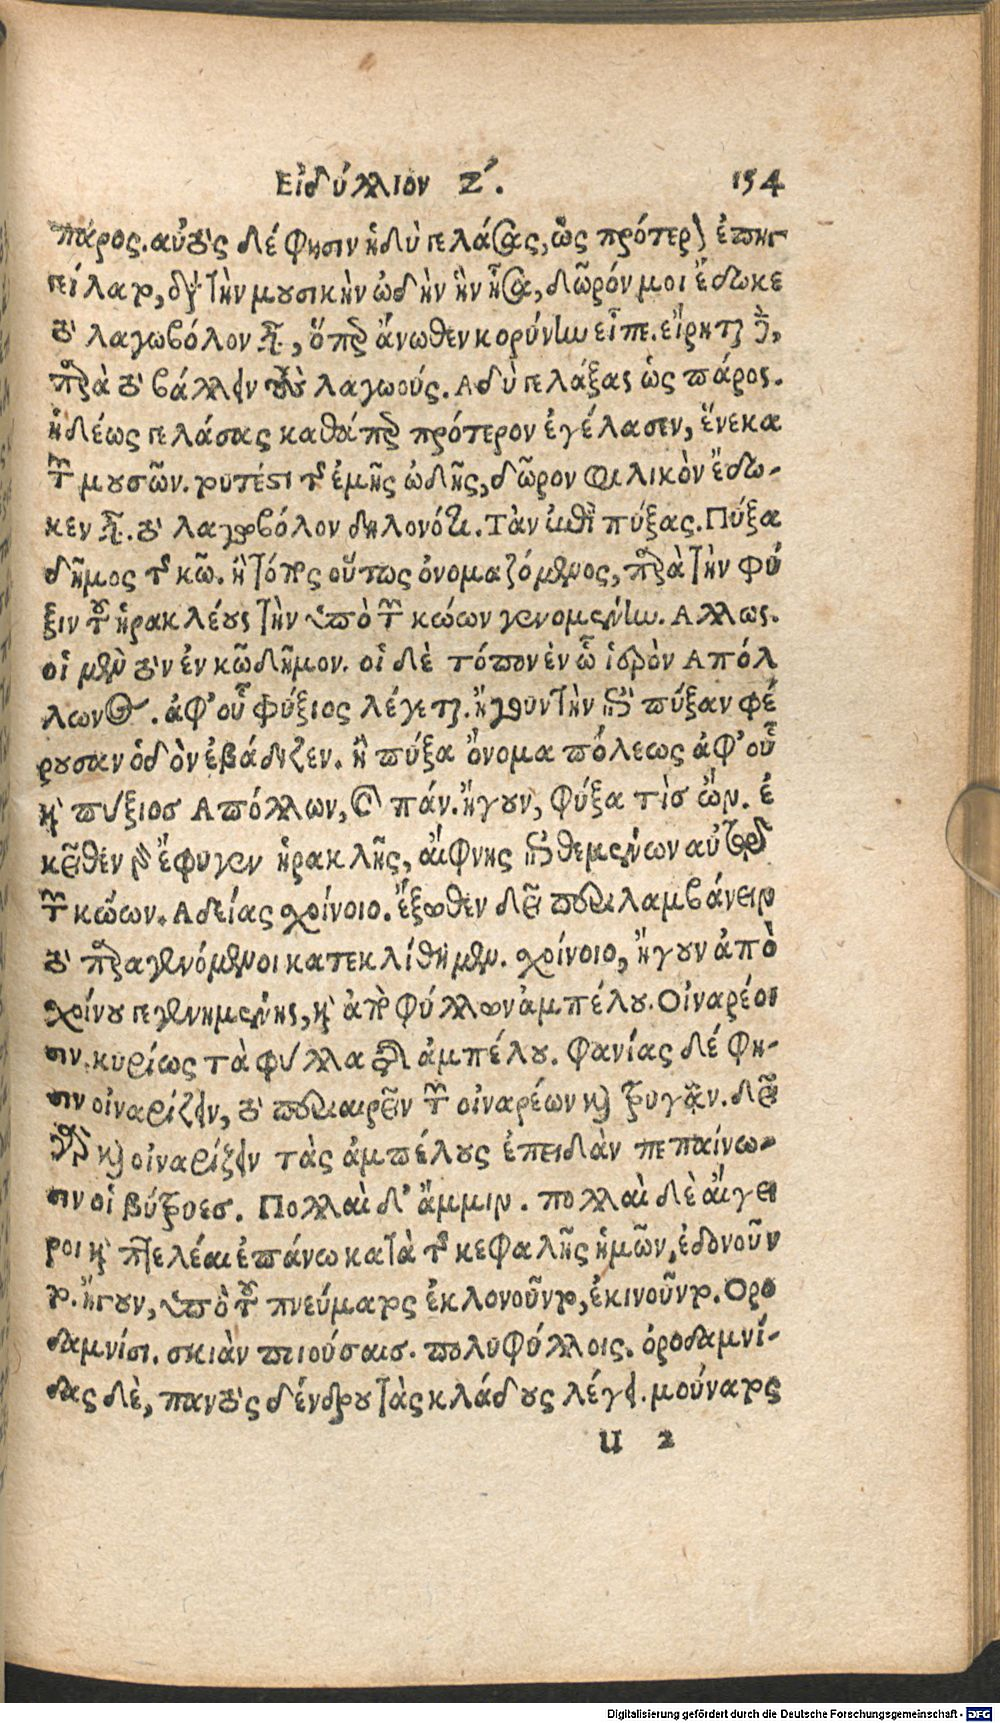 Εἰδύλλιον Ζ΄. 154
πάρος. αὐτὸς δέ φησιν ἡδὺ γελάσας, ὡς πρότερον ἐπηγ
γείλατο, διὰ τὴν μουσικὴν ᾠδὴν ἣν ᾖσα, δῶρόν μοι ἔδωκε
τὸ λαγωβόλον, ὅπερ ἄνωθεν κορύνην εἶπε. εἴρηται
παρὰ τὸ βάλλειν τοὺς λαγωούς. Αδὺ γελάξας ὡς πάρος.
ἡδέως γελάσας καθάπερ πρότερον ἐγέλασεν, ἕνεκα
τῶν μουσῶν. τουτέστι τῆς ἐμῆς ᾠδῆς, δῶρον φιλικὸν ἔδω-
κεν τὸ λαγωβόλον δηλονότι. Τὰν ἐπὶ πύξας. Πύξα
δῆμος τῆς κῶ. ἢ τόπος οὕτως ὀνομαζόμενος, παρὰ τὴν φύ
ξιν τοῦ ἡρακλέους τὴν ὑπὸ τῶν κώων γενομένην. Αλλως.
οἱ μὲν οὖν ἐν κῶ δῆμον. οἱ δὲ τόπον ἐν ᾧ ἱερὸν Απόλ
λωνος. ἀφ' οὗ φύξιος λέγεται. ἤγουν τὴν ἐπὶ πύξαν φέ
ρουσαν ὁδὸν ἐβάδιζεν. ἢ πύξα ὄνομα πόλεως ἀφ' οὗ
καὶ πύξιος Απόλλων, καὶ πάν. ἤγουν, φύξα τὶς ὤν. ἐ
κεῖθεν γὰρ ἔφυγεν ἡρακλῆς, αἴφνης ἐπιθεμένων αὐτῷ
τῶν κώων. Αδείας χοίνοιο. ἔξωθεν δεῖ προσλαμβάνειν
τὸ παραγενόμενοι κατεκλίθημεν. χοίνοιο, ἤγουν ἀπὸ
χοίνου γεγενημένης, καὶ ἀπὸ φύλλων ἀμπέλου. Οἰναρέοι
σιν. κυρίως τὰ φύλλα τῆς ἀμπέλου. Φανίας δέ φη-
σιν οἰναρίζειν, τὸ προαιρεῖν τῶν οἰναρέων καὶ τρυγᾶν. δεῖ
γὰρ καὶ οἰναρίζειν τὰς ἀμπέλους ἐπειδὰν πεπαίνω-
σιν οἱ βότρυες. Πολλαὶ δ' ἄμμιν. πολλαὶ δὲ αἴγει
ροι καὶ πτελέαι ἐπάνω κατὰ τῆς κεφαλῆς ἡμῶν, ἐδονοῦν
το. ἤγουν, ὑπὸ τοῦ πνεύματος ἐκλονοῦντο, ἐκινοῦντο. Ορο
δαμνίσι. σκιὰν ποιούσαις. πολυφύλλοις. ὀροδαμνί-
δας δὲ, παντὸς δένδρου τὰς κλάδους λέγει. μούνατος
U 2
Digitalisierung gefördert durch die Deutsche Forschungsgemeinschaft - DFG